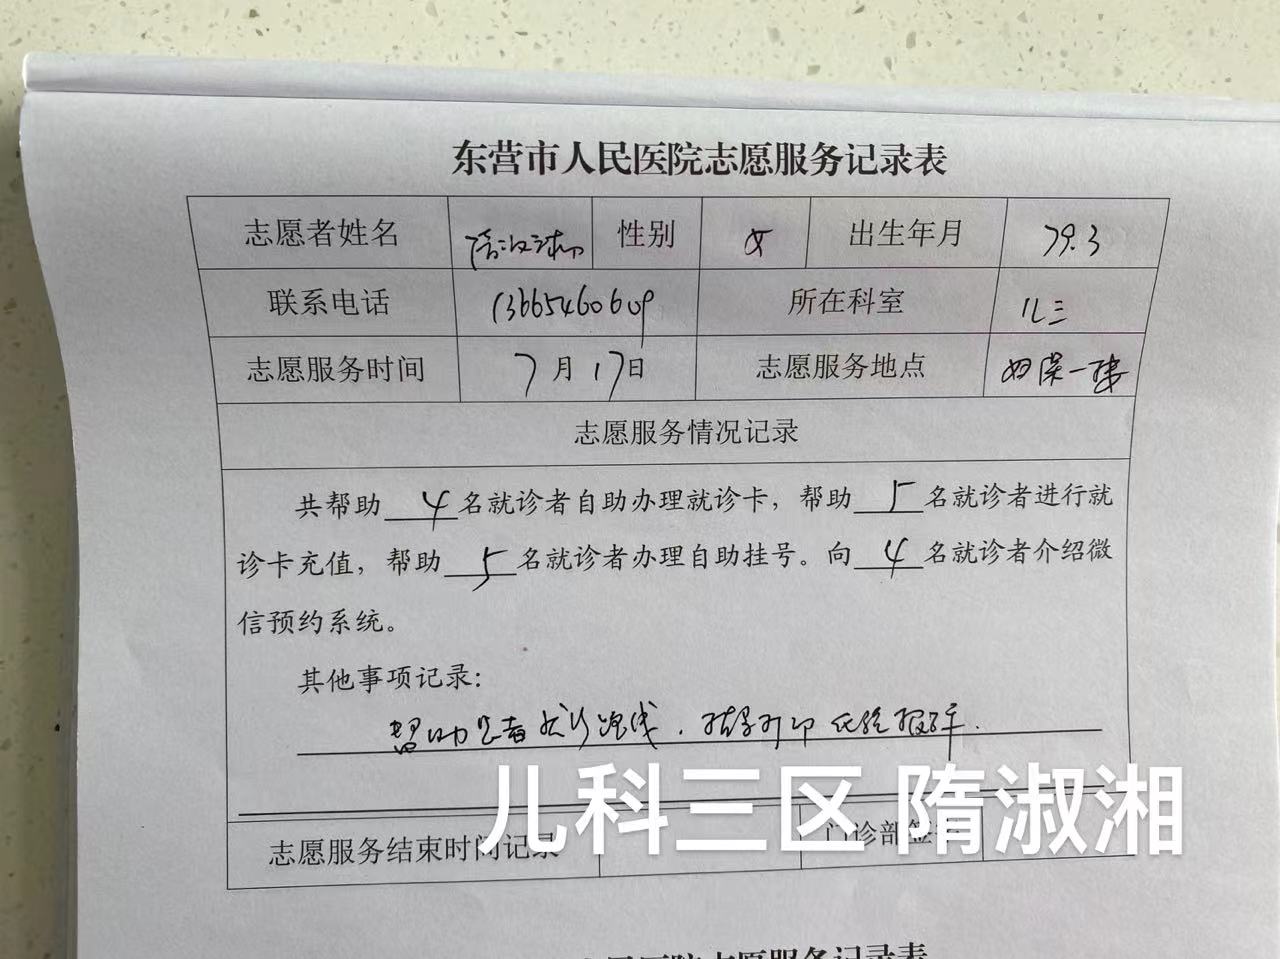 东营市人民医院志愿服务记录表
志愿者姓名 隋淑湘 性别 女 出生年月 79.3
联系电话 13665460609 所在科室 儿三
志愿服务时间 7月17日 志愿服务地点 妇保一楼
志愿服务情况记录
共帮助 4 名就诊者自助办理就诊卡，帮助 5 名就诊者进行就
诊卡充值，帮助 5 名就诊者办理自助挂号。向 4 名就诊者介绍微
信预约系统。
其他事项记录：
帮助患者就诊 ，指导打印化验报告单.
儿科三区 隋淑湘
志愿服务结束时间记录 门诊部签